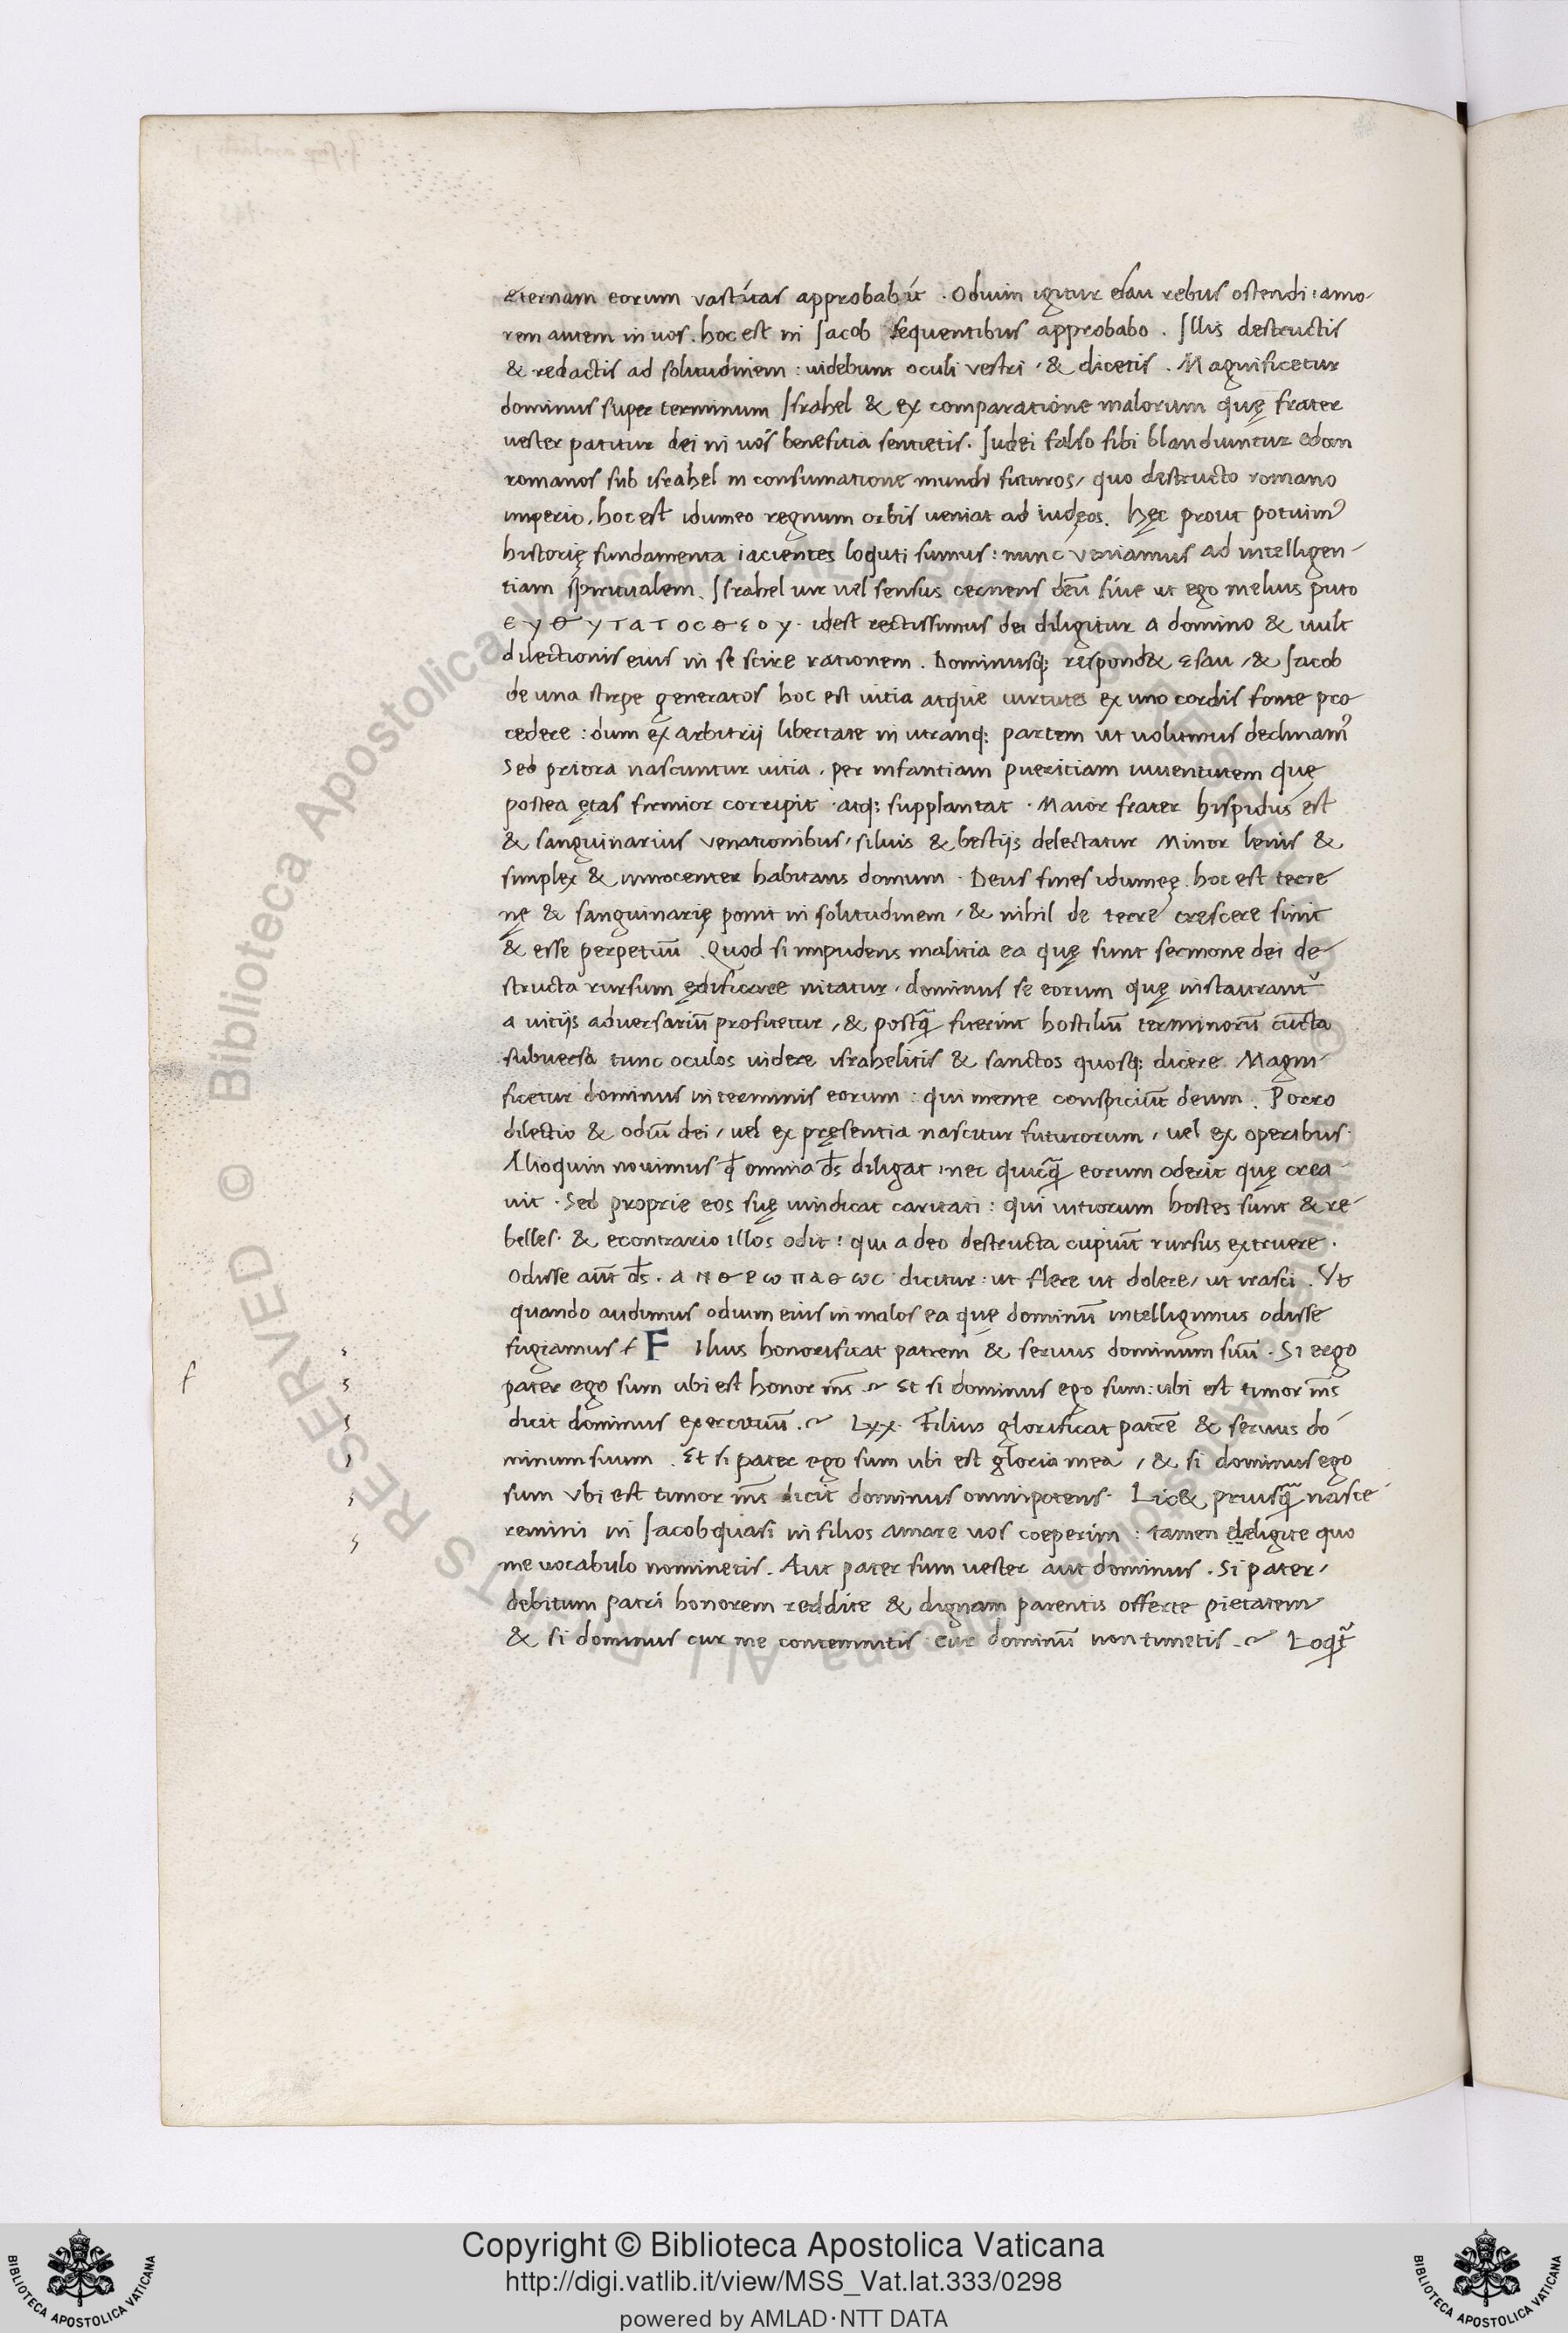 eternam eorum vastitas approbabit . Odium igitur esau rebus ostendi : amo-
rem autem in uos . hoc est in Jacob sequentibus approbabo . Illis destructis
& redactis ad solitudinem : uidebunt oculi vestri , & dicetis . Magnificetur
dominus super terminum Israhel & ex comparatione malorum quę frater
uester patitur dei in uos beneficia sentietis . Iudei falso sibi blandiuntur edom
romanos sub israhel in consumatione mundi futuros , quo destructo romano
imperio . hoc est idumeo regnum orbis ueniat ad iudęos . Hęc prout potuimꝰ
historię fundamenta iacientes loquti sumus : nunc veniamus ad intelligen-
tiam spiritualem . Israhel uir uel sensus cernens deū siue ut ego melius puto
ϵυθυτατοσθεου . idest rectissimus dei diligitur a domino & uult
dilectionis eius in se scire rationem . Dominusq; respond& esau , & Jacob
de una stirpe generatos hoc est uitia atque uirtutes ex uno cordis fonte pro
cedere : dum ex arbitrij libertate in utranq; partem ut uolumus declinamꝰ
Sed priora nascuntur uitia , per infantiam pueritiam iuuentutem quę
postea ętas firmior corripit atq; supplantat . Maior frater hispidus est
& sanguinarius venationibus , siluis & bestijs delectatur Minor lenis &
simplex & innocenter habitans domum . Deus fines idumeę . hoc est terre
nę & sanguinarię ponit in solitudinem , & nihil de terre crescere sinit
& esse perpetuū . Quod si impudens malitia ea quę sunt sermone dei de-
structa rursum ędificare nitatur . dominus se eorum quę instaurant᷑
a uitijs adversariū profitetur , & postq̃ fuerint hostiliū terminorū cūcta
subuersa tunc oculos uidere israhelitis & sanctos quosq; dicere Magni-
ficetur dominus in terminis eorum : qui mente conspiciūt deum . Porro
dilectio & odiū dei , uel ex pręsentia nascitur futurorum , uel ex operibus .
Alioquin nouimus ꝙ omnia d̄s diligat : nec quicq̃ eorum oderit quę crea-
uit . Sed proprie eos suę uindicat caritati : qui uitiorum hostes sunt & re-
belles . & econtrario illos odit : qui a deo destructa cupiūt rursus extruere .
Odisse aūt d̄s . ανθρωπαθωσ dicitur : ut flere ut dolere , ut irasci . Vt
quando audimus odium eius in malos ea quę dominū intelligimus odisse
fugiamus F Ilius honorificat patrem & seruus dominum suū . Si ergo
pater ego sum ubi est honor m̄s Et si dominus ego sum : ubi est timor m̄s
dicit dominus exercituū . LXX . Filius glorificat patrē & seruus do
minum suum . Et si pater ego sum ubi est gloria mea , & si dominus ego
sum vbi est timor m̄s dicit dominus omnipotens . Lic& priusq̃ nasce-
remini in Jacob quasi in filios amare uos coeperim : tamen deligite quo
me uocabulo nominetis . Aut pater sum uester aut dominus . Si pater ,
debitum patri honorem reddite & dignam parentis offerte pietatem
& si dominus cur me contemnitis cur dominū non timetis . Loqt᷑
Copyright © Biblioteca Apostolica Vaticana
http://digi.vatlib.it/view/MSS_Vat.lat.333/0298
powered by AMLAD·NTT DATA
BIBLIOTECA APOSTOLICA VATICANA
BIBLIOTECA APOSTOLICA VATICANA